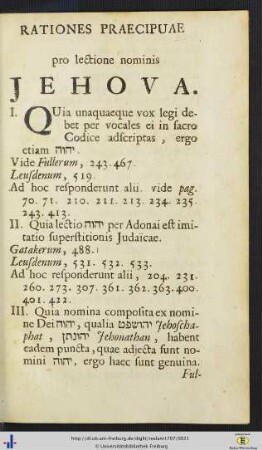 RATIONES PRAECIPUAE
pro lectione nominis
JEHOVA.
I. QUia unaquaeque vox legi de-
bet per vocales ei in sacro
Codice adscriptas, ergo
etiam יהוה.
Vide Fullerum, 243. 467.
Leusdenum, 519.
Ad hoc responderunt alii. vide pag.
70. 71. 210. 211. 213. 234. 235.
243. 413.
II. Quia lectio יהוה per Adonai est imi-
tatio superstitionis Judaicae.
Gatakerum, 488.
Leusdenum, 531. 532. 533.
Ad hoc responderunt alii, 204. 231.
260. 273. 307. 361. 362. 363. 400.
401. 422.
III. Quia nomina composita ex nomi-
ne Dei יהוה, qualia יהושפט Jehoscha-
phat, יהונתן Jehonathan, habent
eadem puncta, quae adjecta sunt no-
mini יהוה, ergo haec sunt genuina.
Ful-
© Universitätsbibliothek Freiburg